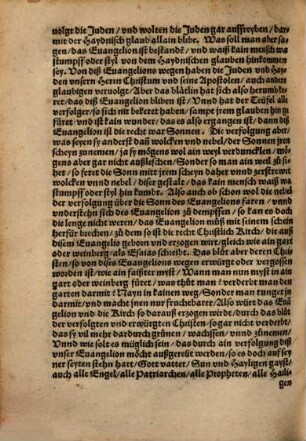 uolgt die Juden / vnd wolten die Juden gar außreyben / dar-
mit der Haydnisch glaub allain blibe. Was soll man aber sa-
gen / das Euangelion ist bestandẽ / vnd waißt kain mensch wa
stumpff oder styl von dem Haydnischen glauben hinkommen
sey. Von diß Euangelions wegen haben die Juden vnd Hay
den vnsern Herrn Christum vnd seine Apostolen / auch andern
glaubigen veruolgt / Aber das blätlin hat sich also herumb ke
ret / das diß Euangelion bliben ist / Vnnd hat der Teüfel alle
verfolger / so sich nit bekert haben / sampt jrem glauben hin ge
füret vnd ist kain wunder / das es also ergangen ist / dann diß
Euangelion ist die recht war Sonnen. Die verfolgung aber /
was eyn seyen sy anderst dañ wolcken vnd nebel / der Sonnen jren
scheyn zunemen / ja sy mögen wol ain weyl verdunncklen / mö-
gens aber gar nicht außleschen / Sonder so man ain weil zů si-
het / so feret die Sonn mitt jrem scheyn daher vnnd zerstrewet
wolcken vnnd nebel / biß es gestalt / das kain mensch waißt wa
stumpff oder styl hin kumbt. Also auch ob schon wol die nebel
der verfolgung über die Sonn des Euangelions faren / vnnd
vnderstehn sich des Euangelion zů dempffen / so kan es doch
die lenge nicht weren / das Euangelion můß mit seinem schein
herfür brechen / zů dem so ist die recht Christlich Kirch / die auß
disem Euangelio geborn vnd erzogen wirt / gleich wie ain gart
oder weinberg / als Esaias schreibt. Das blůt aber deren Chri
sten / so von dises Euangelions wegen erwürgt oder vergossen
worden ist / wie ain faißter myst / Wann man nun myst in ain
gart oder weinberg füret / was thůt man? verderbt man den
garten darmit? Nayn in kainen weg / Sonder man tunget jn
darmit / vnd macht jnen nur fruchtbarer / Also würt das Euan
gelion vnd die Kirch so darauß erzogen wirdt / durch das blůt
der verfolgten vnd erwürgten Christen / so gar nicht verderbt /
das sy vil mehr dardurch grünen / wachssen / vnnd zůnemen /
Vnnd wie solt es müglich sein / das durch ain verfolgung diß
vnser Euangelion möcht außgereüt werden / so es doch auf sey
ner seyten stehn hatt / Gott vatter / Sun vnd Hayligen gayst /
auch alle Engel / alle Patriarchen / alle Propheten / alle Hayli-
gen